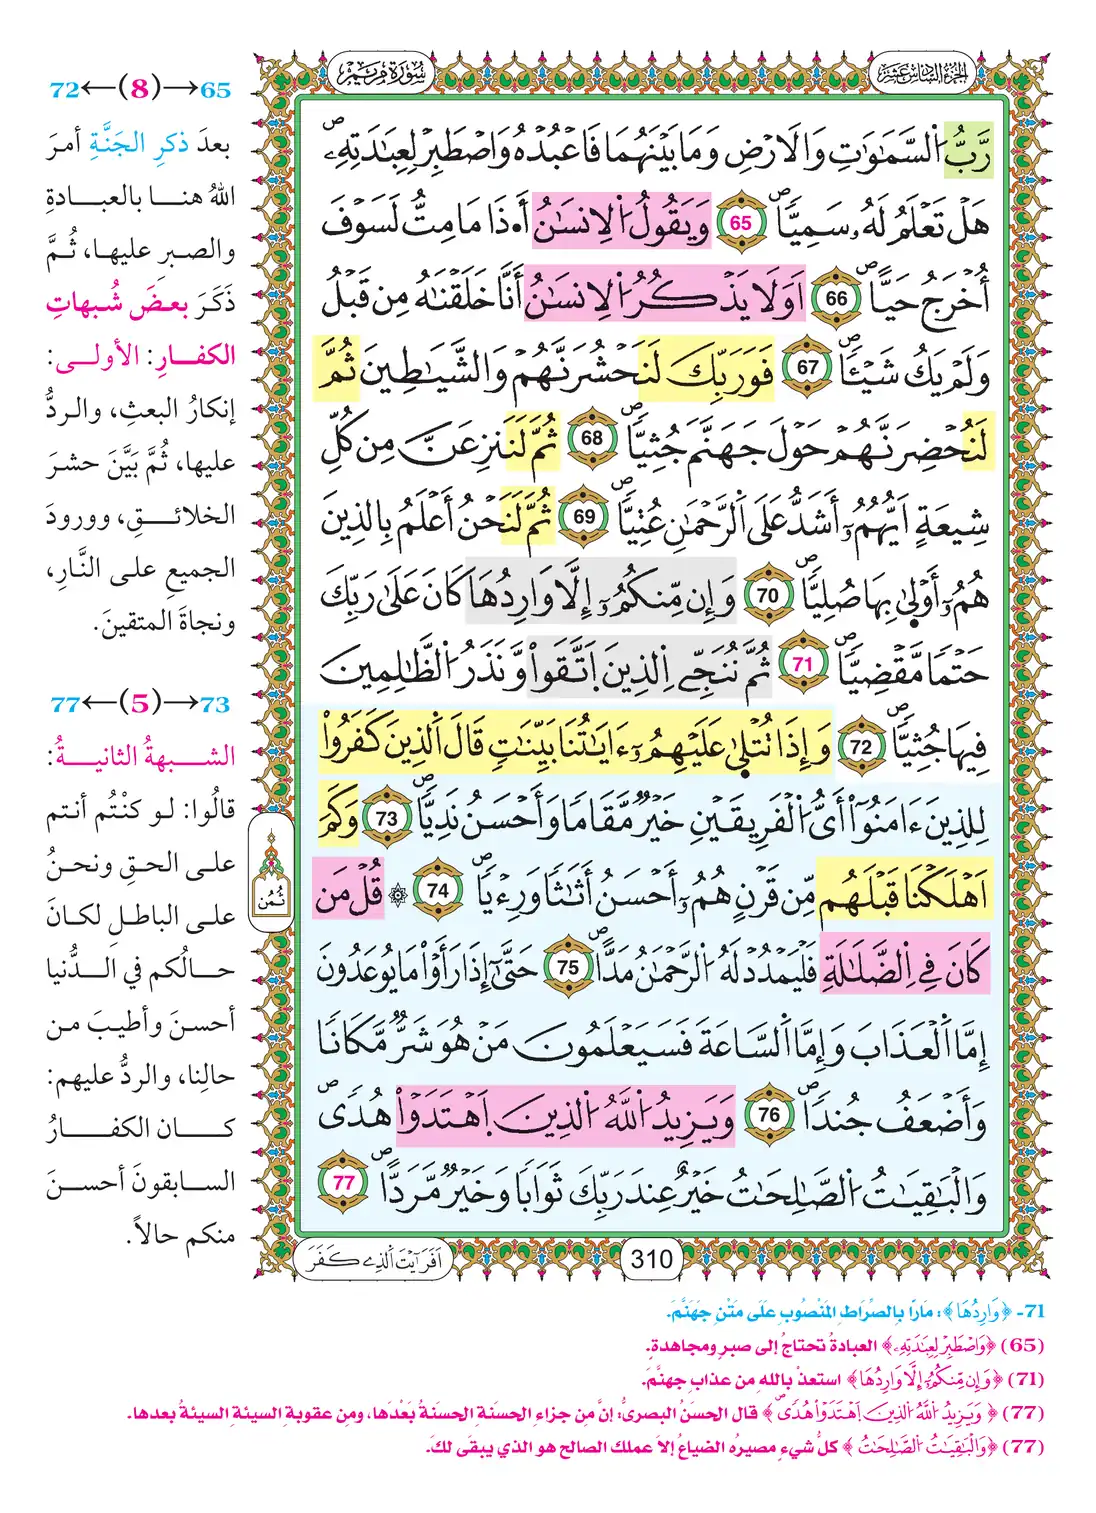 سُورَةُ مَرْيَم
الجزء السادس عشر
رَّبُّ اُ۬لسَّمَٰوَٰتِ وَالَارْضِ وَمَا بَيْنَهُمَا فَاعْبُدْهُ وَاصْطَبِرْ لِعِبَٰدَتِهِۦۖ
هَلْ تَعْلَمُ لَهُۥ سَمِيّٗاۖ 65 وَيَقُولُ اُ۬لِانسَٰنُ أَ•ذَا مَا مِتُّ لَسَوْفَ
أُخْرَجُ حَيّاًۖ 66 اَوَلَا يَذْكُرُ اُ۬لِانسَٰنُ أَنَّا خَلَقْنَٰهُ مِن قَبْلُ
وَلَمْ يَكُ شَيْـٔٗاۖ 67 فَوَرَبِّكَ لَنَحْشُرَنَّهُمْ وَالشَّيَٰطِينَ ثُمَّ
لَنُحْضِرَنَّهُمْ حَوْلَ جَهَنَّمَ جُثِيّٗاۖ 68 ثُمَّ لَنَنزِعَنَّ مِن كُلِّ
شِيعَةٍ اَيُّهُمُۥٓ أَشَدُّ عَلَى اَ۬لرَّحْمَٰنِ عُتِيّٗاۖ 69 ثُمَّ لَنَحْنُ أَعْلَمُ بِالذِينَ
هُمُۥٓ أَوْلَىٰ بِهَا صُلِيّٗاۖ 70 وَإِن مِّنكُمُۥٓ إِلَّا وَارِدُهَا كَانَ عَلَىٰ رَبِّكَ
حَتْمٗا مَّقْضِيّٗاۖ 71 ثُمَّ نُنَجِّے اِ۬لذِينَ اَ۪تَّقَواْ وَّنَذَرُ اُ۬لظَّٰلِمِينَ
فِيهَا جُثِيّٗاۖ 72 وَإِذَا تُتْلَىٰ عَلَيْهِمُۥٓ ءَايَٰتُنَا بَيِّنَٰتٖ قَالَ اَ۬لذِينَ كَفَرُواْ
لِلذِينَ ءَامَنُوٓاْ أَيُّ اُ۬لْفَرِيقَيْنِ خَيْرٞ مَّقَامٗا وَأَحْسَنُ نَدِيّٗاۖ 73 وَكَمَ
اَهْلَكْنَا قَبْلَهُم مِّن قَرْنٍ هُمُۥٓ أَحْسَنُ أَثَٰثٗا وَرِءْيٗاۖ 74 ۞ قُلْ مَن
كَانَ فِے اِ۬لضَّلَٰلَةِ فَلْيَمْدُدْ لَهُ اُ۬لرَّحْمَٰنُ مَدّاًۖ 75 حَتَّىٰٓ إِذَا رَأَوْاْ مَا يُوعَدُونَ
إِمَّا اَ۬لْعَذَابَ وَإِمَّا اَ۬لسَّاعَةَ فَسَيَعْلَمُونَ مَنْ هُوَ شَرّٞ مَّكَانٗا
وَأَضْعَفُ جُندٗاۖ 76 وَيَزِيدُ اُ۬للَّهُ اُ۬لذِينَ اَ۪هْتَدَوْاْ هُدٗىۖ
وَالْبَٰقِيَٰتُ اُ۬لصَّٰلِحَٰتُ خَيْرٌ عِندَ رَبِّكَ ثَوَابٗا وَخَيْرٞ مَّرَدّاًۖ 77
ثُمُن
310
اَفَرَٰٓيْتَ اَ۬لذِے كَفَرَ
65→(8)←72
بعدَ ذكرِ الجَنَّةِ أمرَ
اللهُ هنا بالعبادةِ
والصبرِ عليها، ثُمَّ
ذَكَرَ بعضَ شُبهاتِ
الكفارِ: الأولى:
إنكارُ البعثِ، والردُّ
عليها، ثُمَّ بَيَّنَ حشرَ
الخلائقِ، وورودَ
الجميعِ على النَّارِ،
ونجاةَ المتقينَ.
73→(5)←77
الشبهةُ الثانيةُ:
قالُوا: لو كنْتُم أنتم
على الحقِ ونحنُ
على الباطلِ لكانَ
حالُكم في الدُّنيا
أحسنَ وأطيبَ من
حالِنا، والردُّ عليهم:
كان الكفارُ
السابقونَ أحسنَ
منكم حالاً.
71- ﴿وَارِدُهَا﴾: مَارًّا بِالصِّرَاطِ المَنْصُوبِ عَلَى مَتْنِ جَهَنَّمَ.
(65) ﴿وَاصْطَبِرْ لِعِبَٰدَتِهِۦ﴾ العبادةُ تحتاجُ إلى صبرٍ ومجاهدةٍ.
(71) ﴿وَإِن مِّنكُمُۥٓ إِلَّا وَارِدُهَا﴾ استعذْ باللهِ من عذابِ جهنَّمَ.
(77) ﴿وَيَزِيدُ اُ۬للَّهُ اُ۬لذِينَ اَ۪هْتَدَوْاْ هُدٗىۖ﴾ قال الحسَنُ البصريُّ: إنَّ من جزاءِ الحسنَةِ الحسنَةُ بَعْدَها، ومِن عقوبةِ السيئةِ السيئةُ بعدها.
(77) ﴿وَالْبَٰقِيَٰتُ اُ۬لصَّٰلِحَٰتُ﴾ كلُّ شيءٍ مصيرُه الضياعُ إلا عملك الصالح هو الذي يبقَى لكَ.